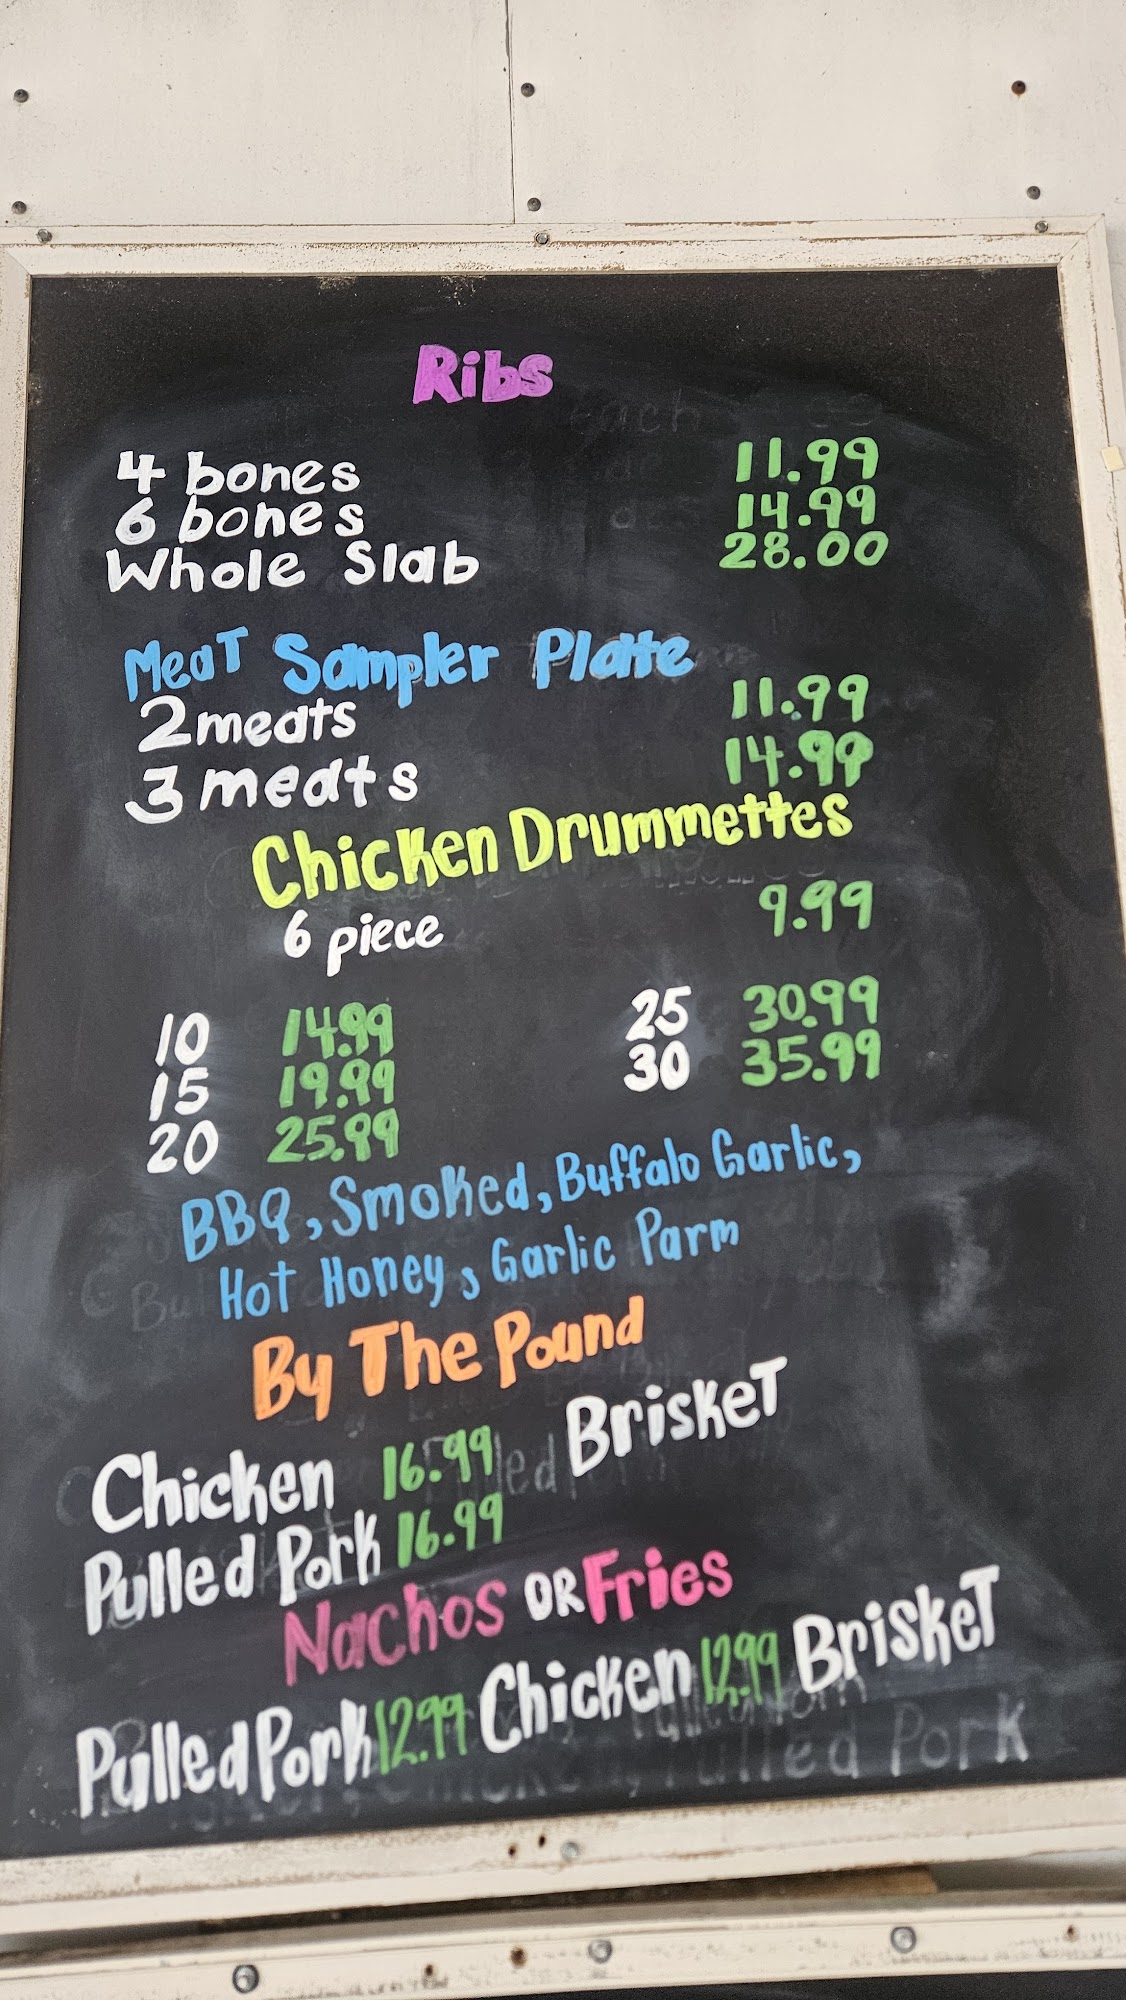 Ribs
4 bones 11.99
6 bones 14.99
Whole Slab 28.00
Meat Sampler Plate
2 meats 11.99
3 meats 14.99
Chicken Drummettes
6 piece 9.99
10 14.99 25 30.99
15 19.99 30 35.99
20 25.99
BBQ, Smoked, Buffalo Garlic,
Hot Honey, Garlic Parm
By The Pound
Chicken 16.99 Brisket
Pulled Pork 16.99
Nachos OR Fries
Pulled Pork 12.99 Chicken 12.99 Brisket